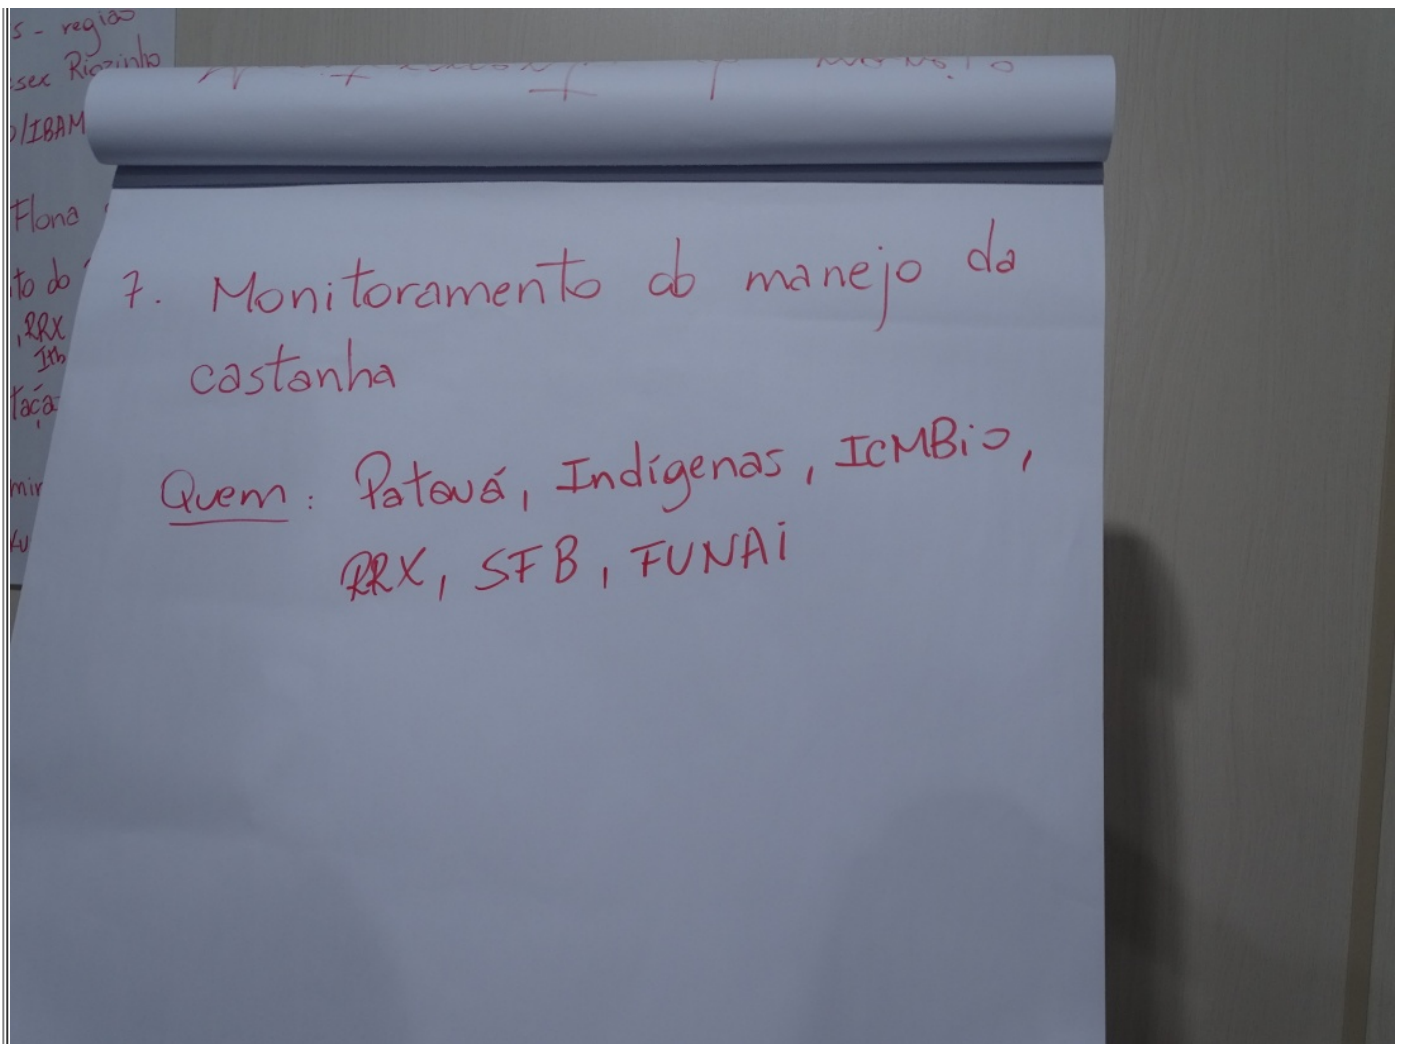 s - região
sex Riozinho
/IBAM
Flona
to do
, RRX
7. Monitoramento do manejo da
castanha
Quem: Patauá, Indígenas, ICMBio,
RRX, SFB, FUNAI